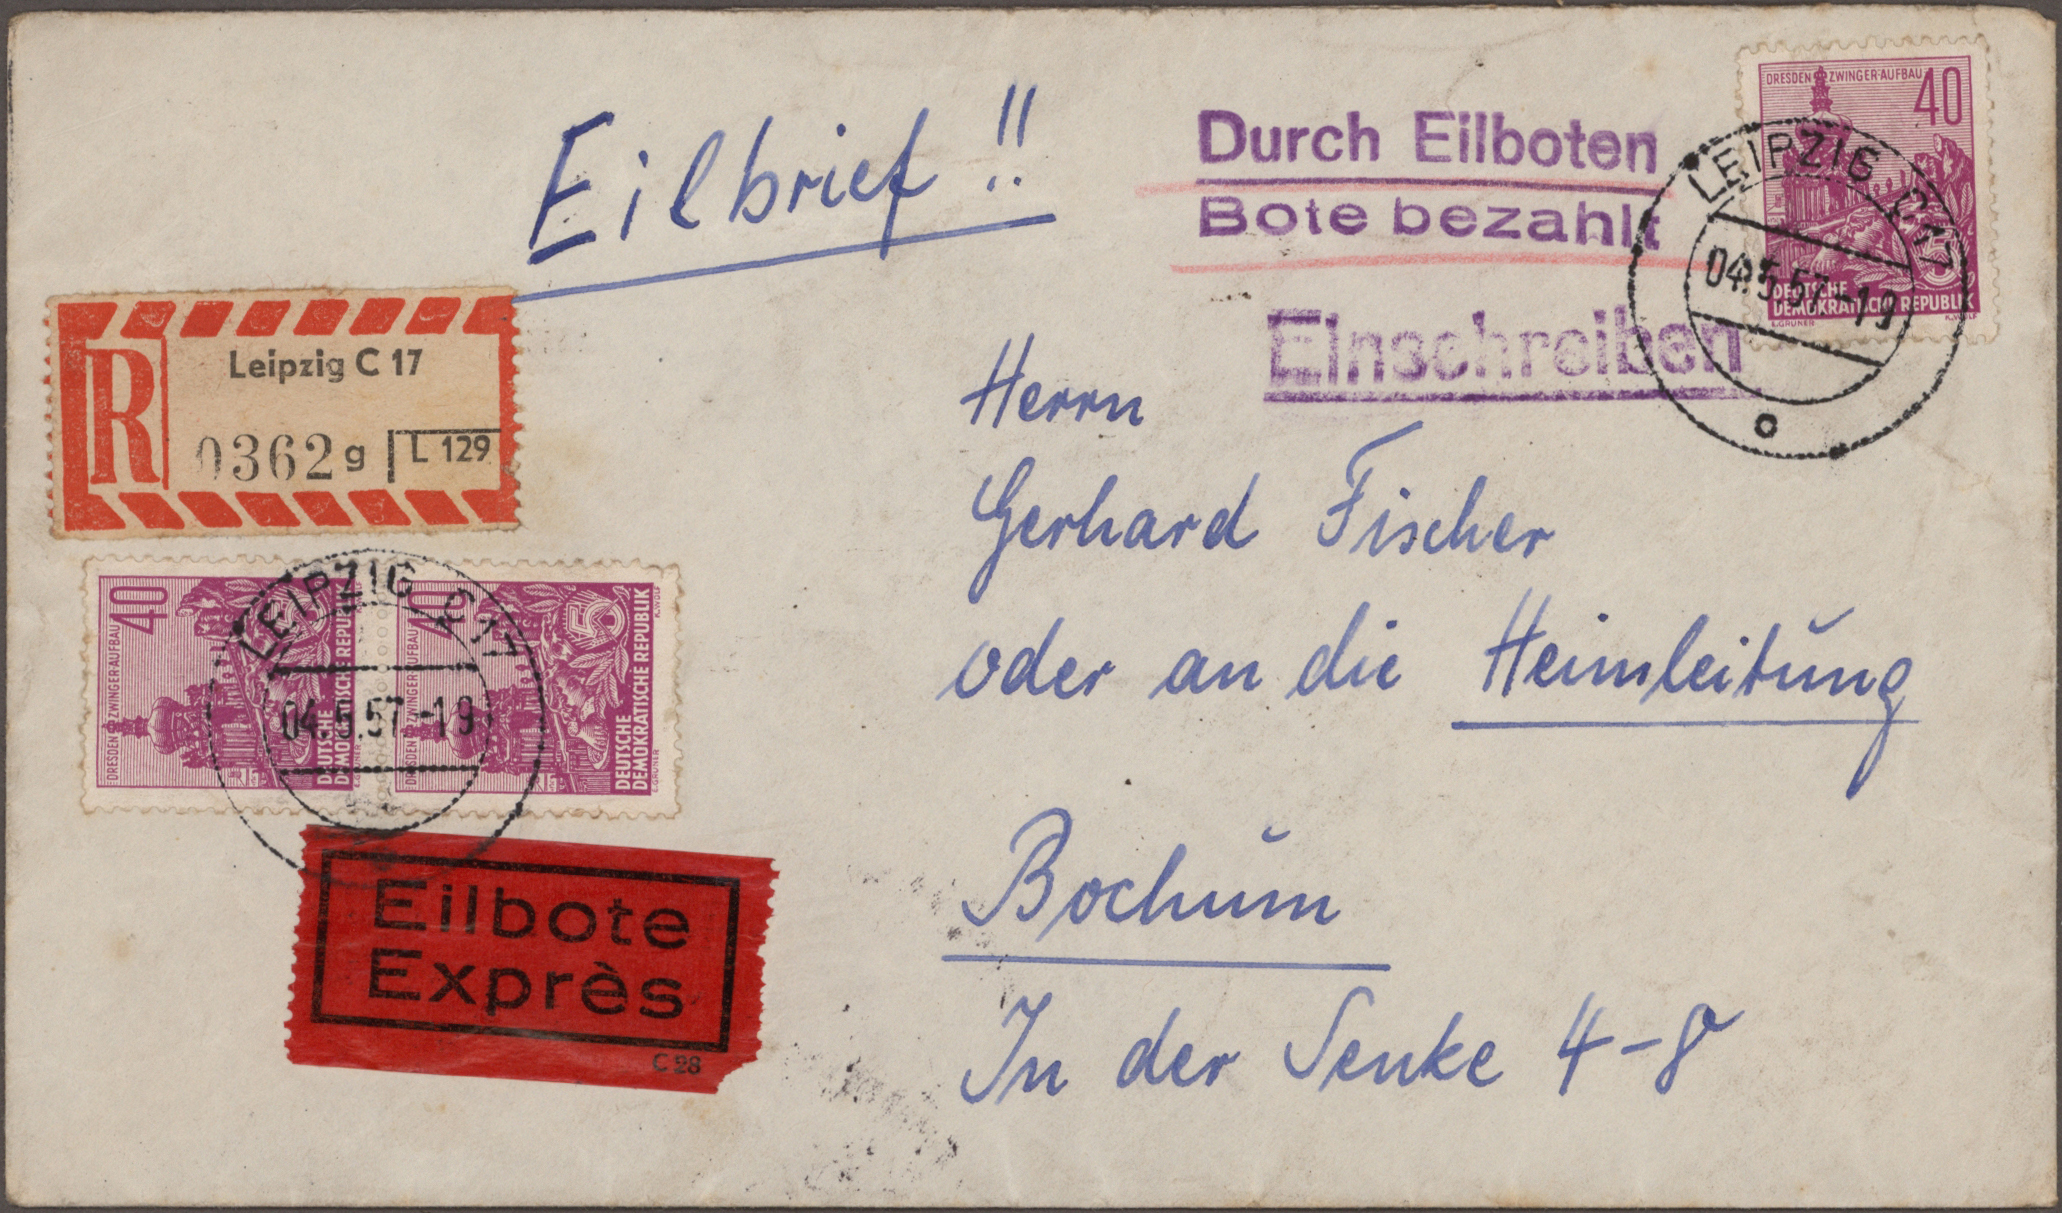 Eilbrief !!
Durch Eilboten
Bote bezahlt
Einschreiben
DRESDEN ZWINGER-AUFBAU
40
5
DEUTSCHE
DEMOKRATISCHE REPUBLIK
E.GRUNER K.WOLF
LEIPZIG C17
04.5.57.-19
o
R
Leipzig C 17
0362 g
L 129
DRESDEN ZWINGER-AUFBAU
40
DEUTSCHE
DEMOKRATISCHE REPUBLIK
DRESDEN ZWINGER-AUFBAU
40
5
DEUTSCHE
DEMOKRATISCHE REPUBLIK
E.GRUNER K.WOLF
LEIPZIG C17
04.5.57.-19
Eilbote
Exprès
C 28
Herrn
Gerhard Fischer
oder an die Heimleitung
Bochum
In der Senke 4-8